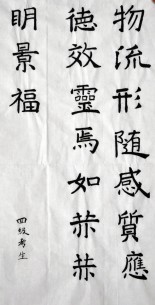 物流形随感質應
徳效靈焉如恭恭
明景福
四级考生